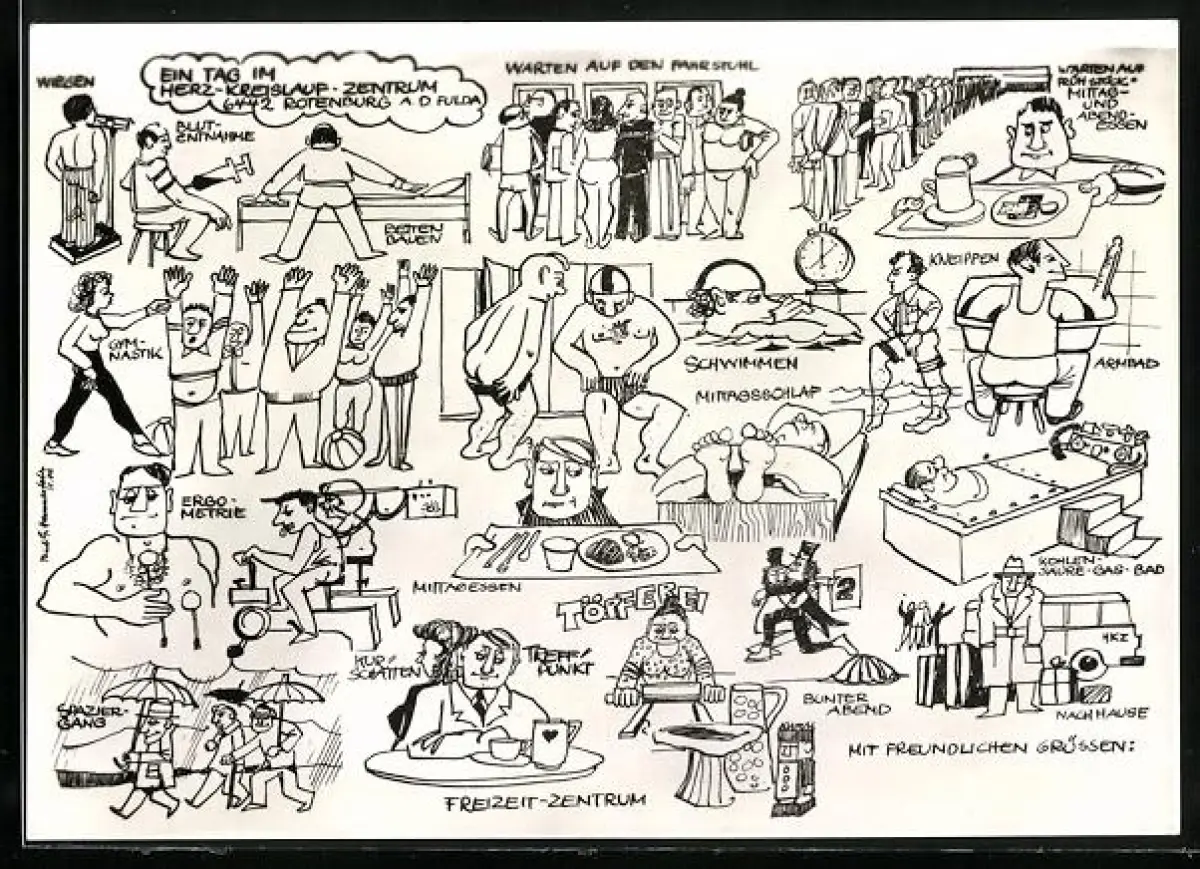 WIEGEN
EIN TAG IM
HERZ-KREISLAUF-ZENTRUM
6442 ROTENBURG A D FULDA
BLUT-
ENTNAHME
BETTEN
BAUEN
WARTEN AUF DEN FAHRSTUHL
WARTEN AUF
FRÜHSTÜCK-
MITTAG-
UND
ABEND-
ESSEN
GYM-
NASTIK
SCHWIMMEN
KNEIPPEN
ARMBAD
MITTAGSSCHLAF
ERGO-
METRIE
MITTAGESSEN
KOHLEN-
SÄURE-GAS-BAD
TÖPFEREI
2
KUR-
SCHATTEN
TREFF-
PUNKT
BUNTER
ABEND
HKZ
NACH HAUSE
SPAZIER-
GANG
FREIZEIT-ZENTRUM
MIT FREUNDLICHEN GRÜSSEN: